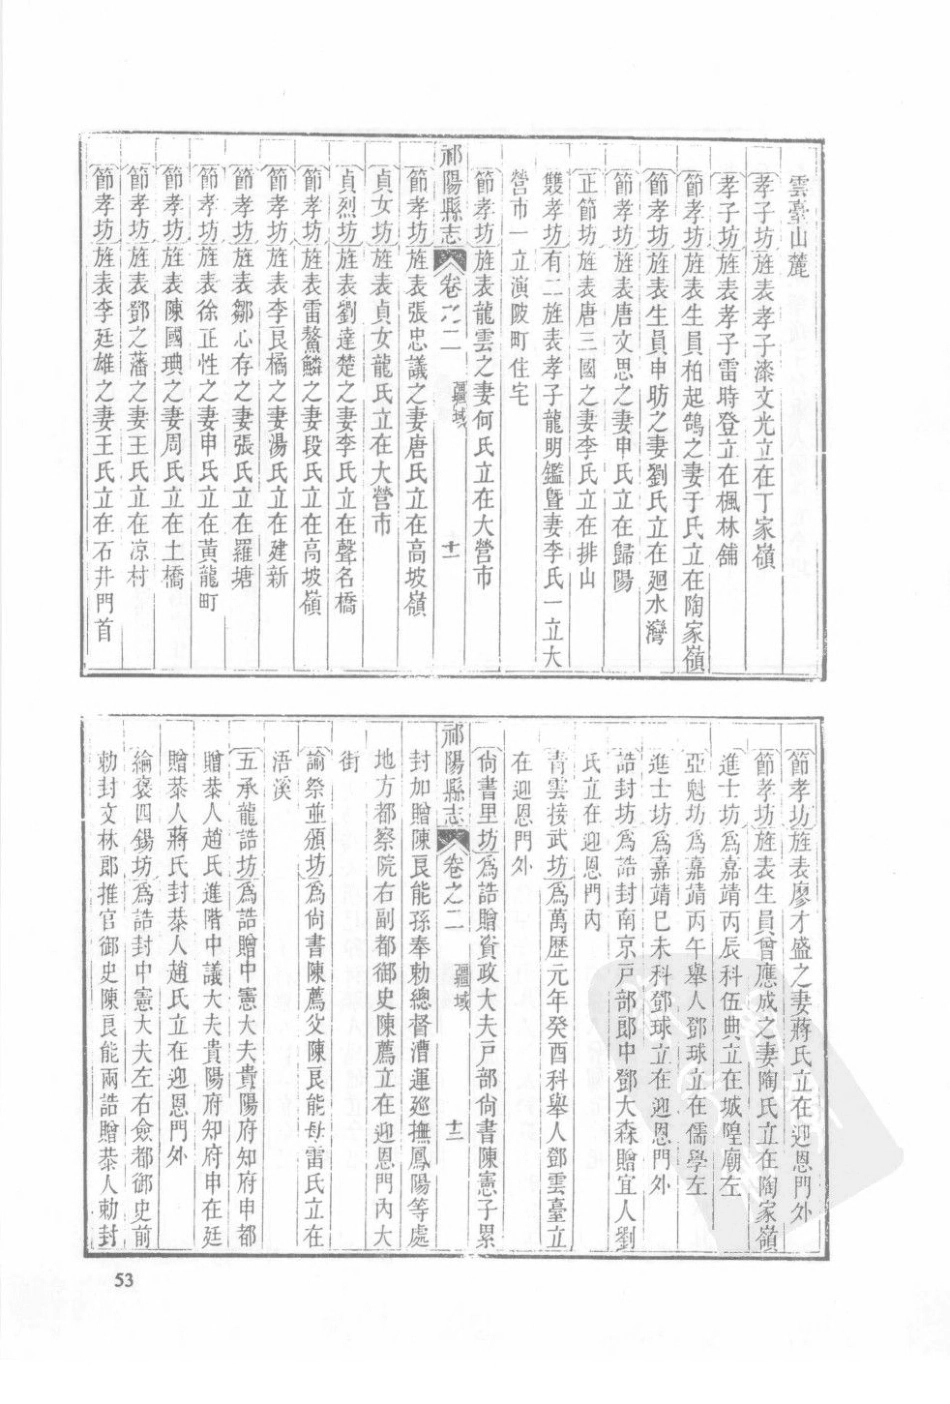 雲臺山麓
孝子坊旌表孝子漆文光立在丁家嶺
孝子坊旌表孝子雷時登立在楓林舖
節孝坊旌表生員柏起鵠之妻于氏立在陶家嶺
節孝坊旌表生員申昉之妻劉氏立在廻水灣
節孝坊旌表唐文思之妻申氏立在歸陽
正節坊旌表唐三國之妻李氏立在排山
雙孝坊有二旌表孝子龍明鑑曁妻李氏一立大
營市一立演陂町住宅
節孝坊旌表龍雲之妻何氏立在大營市
祁陽縣志 卷之二 疆域 十一
節孝坊旌表張忠議之妻唐氏立在高坡嶺
貞女坊旌表貞女龍氏立在大營市
貞烈坊旌表劉達楚之妻李氏立在聲名橋
節孝坊旌表雷鰲鱗之妻段氏立在高坡嶺
節孝坊旌表李良橘之妻湯氏立在建新
節孝坊旌表鄒心存之妻張氏立在羅塘
節孝坊旌表徐正性之妻申氏立在黃龍町
節孝坊旌表陳國璵之妻周氏立在土橋
節孝坊旌表鄧之藩之妻王氏立在凉村
節孝坊旌表李廷雄之妻王氏立在石井門首
節孝坊旌表廖才盛之妻蔣氏立在迎恩門外
節孝坊旌表生員曾應成之妻陶氏立在陶家嶺
進士坊爲嘉靖丙辰科伍典立在城隍廟左
亞魁坊爲嘉靖丙午舉人鄧球立在儒學左
進士坊爲嘉靖己未科鄧球立在迎恩門外
誥封坊爲誥封南京戸部郎中鄧大森贈宜人劉
氏立在迎恩門內
青雲接武坊爲萬歷元年癸酉科舉人鄧雲臺立
在迎恩門外
尚書里坊爲誥贈資政大夫戸部尚書陳憲子累
祁陽縣志 卷之二 疆域 十二
封加贈陳良能孫奉勅總督漕運廵撫鳳陽等處
地方都察院右副都御史陳薦立在迎恩門內大
街
諭祭並頒坊爲尚書陳薦父陳良能母雷氏立在
浯溪
五承龍誥坊爲誥贈中憲大夫貴陽府知府申都
贈恭人趙氏進階中議大夫貴陽府知府申在廷
贈恭人蔣氏封恭人趙氏立在迎恩門外
綸褒四錫坊爲誥封中憲大夫左右僉都御史前
勅封文林郎推官御史陳良能兩誥贈恭人勅封
53